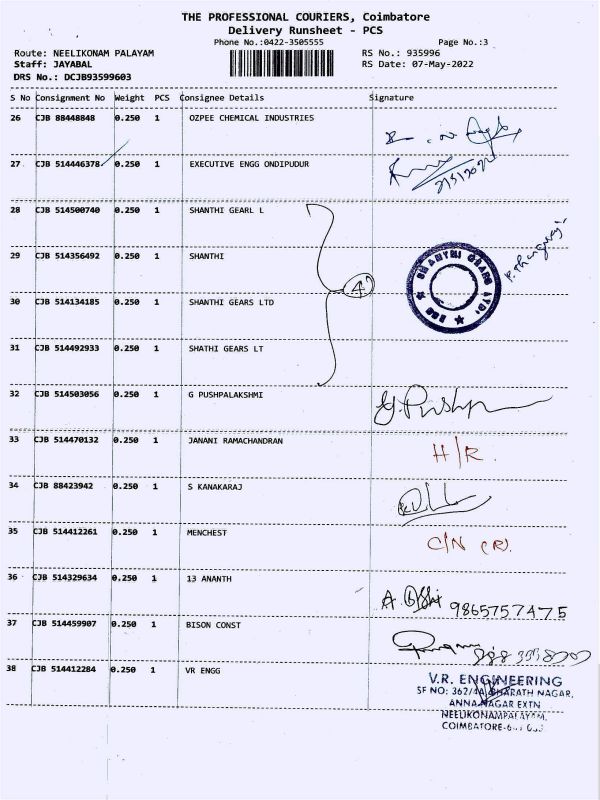 THE PROFESSIONAL COURIERS, Coimbatore
Delivery Runsheet - PCS
Phone No.:0422-3505555 Page No.:3
Route: NEELIKONAM PALAYAM RS No.: 935996
Staff: JAYABAL RS Date: 07-May-2022
DRS No.: DCJB93599603
S No Consignment No Weight PCS Consignee Details Signature
26 CJB 88448848 0.250 1 OZPEE CHEMICAL INDUSTRIES
27 CJB 514446378 0.250 1 EXECUTIVE ENGG ONDIPUDUR
28 CJB 514500740 0.250 1 SHANTHI GEARL L
29 CJB 514356492 0.250 1 SHANTHI
4
SHANTHI GEARS
30 CJB 514134185 0.250 1 SHANTHI GEARS LTD
31 CJB 514492933 0.250 1 SHATHI GEARS LT
32 CJB 514503056 0.250 1 G PUSHPALAKSHMI
G. Pushpa
33 CJB 514470132 0.250 1 JANANI RAMACHANDRAN
H/R.
34 CJB 88423942 0.250 1 S KANAKARAJ
35 CJB 514412261 0.250 1 MENCHEST
C/N (R).
36 CJB 514329634 0.250 1 13 ANANTH
9865757475
37 CJB 514459907 0.250 1 BISON CONST
38 CJB 514412284 0.250 1 VR ENGG
V.R. ENGINEERING
SF NO: 362/4A, BHARATH NAGAR,
ANNA NAGAR EXTN
NEELIKONAMPALAYAM,